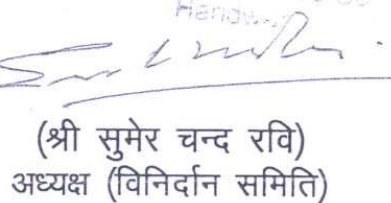 (श्री सुमेर चन्द रवि)
अध्यक्ष (विनिर्दान समिति)